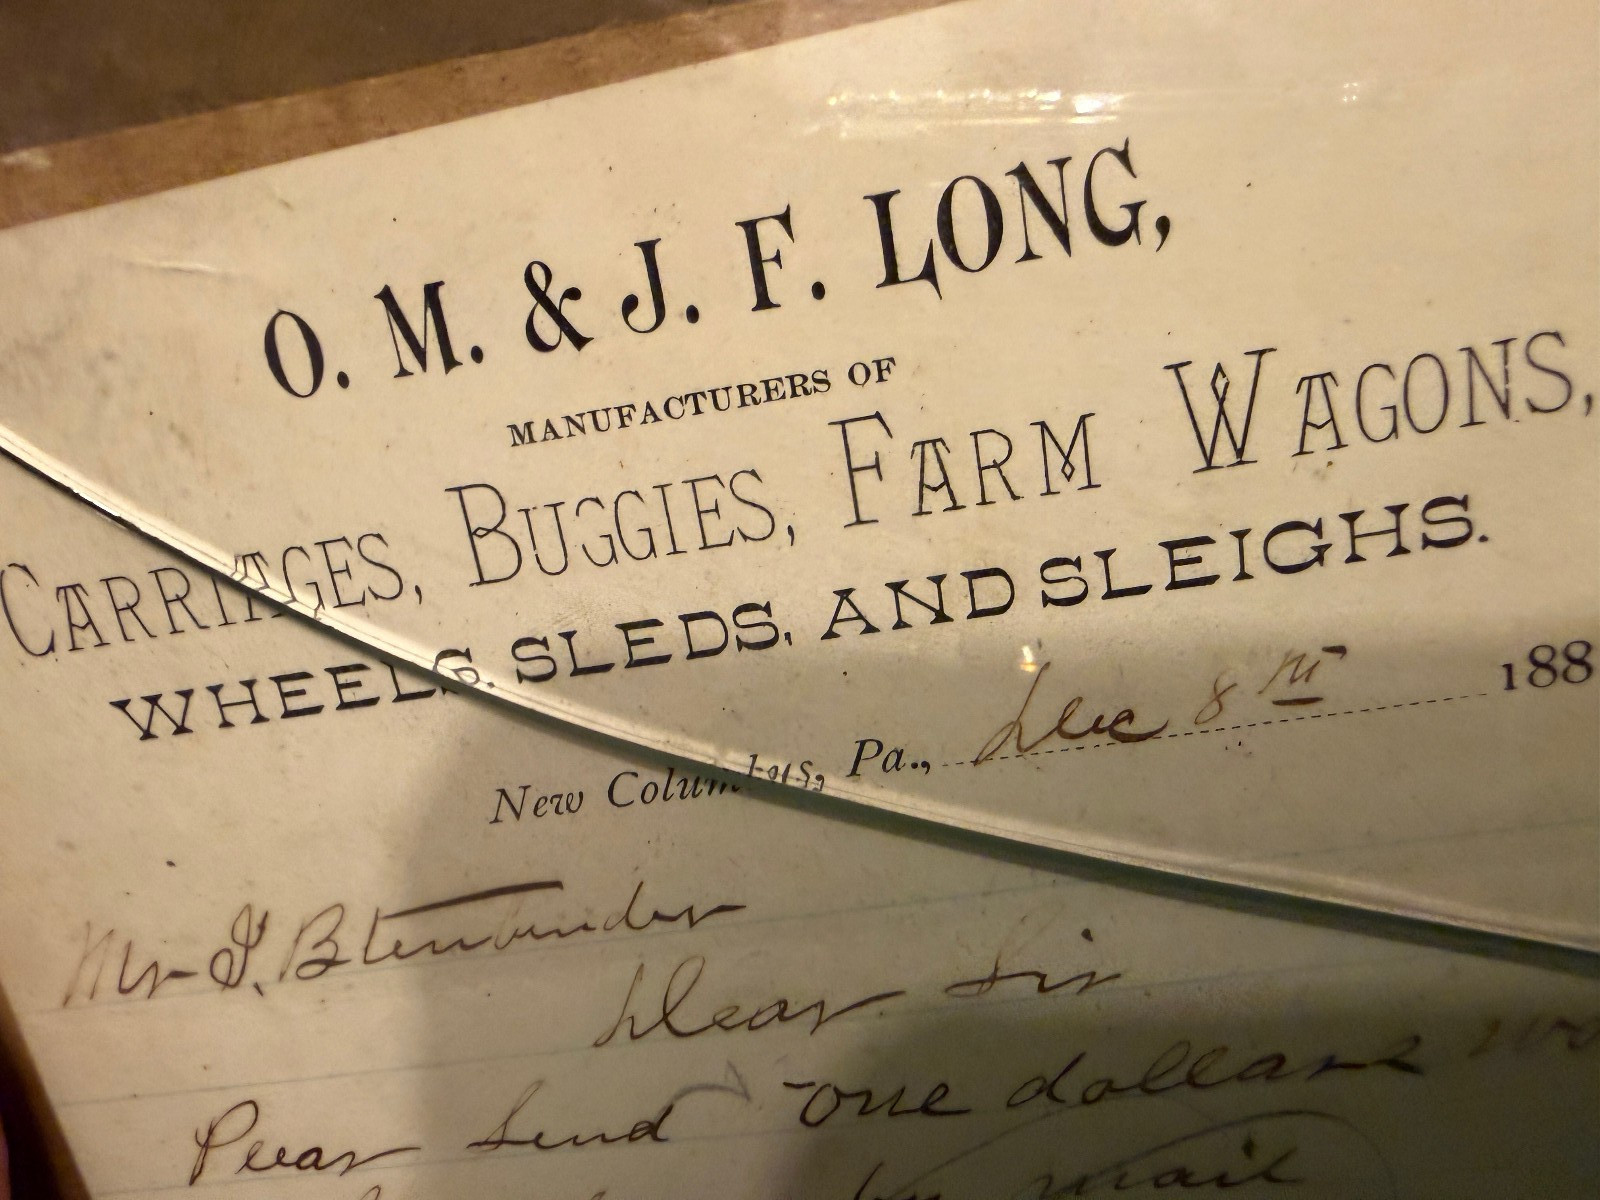 O. M. & J. F. LONG,
MANUFACTURERS OF
CARRIAGES, BUGGIES, FARM WAGONS,
WHEELS, SLEDS, AND SLEIGHS.
New Columbus, Pa., Dec 8th 188
Mr J. Btenbender
Dear Sir
Peeas Send one dollars
by mail